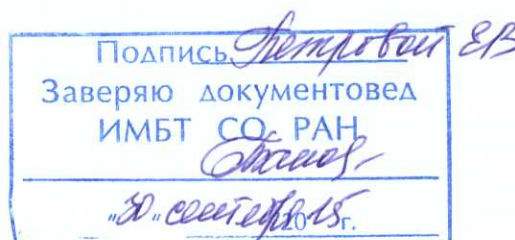 Подпись Петровой ЕВ
Заверяю документовед
ИМБТ СО РАН
"30" сентября 2015г.